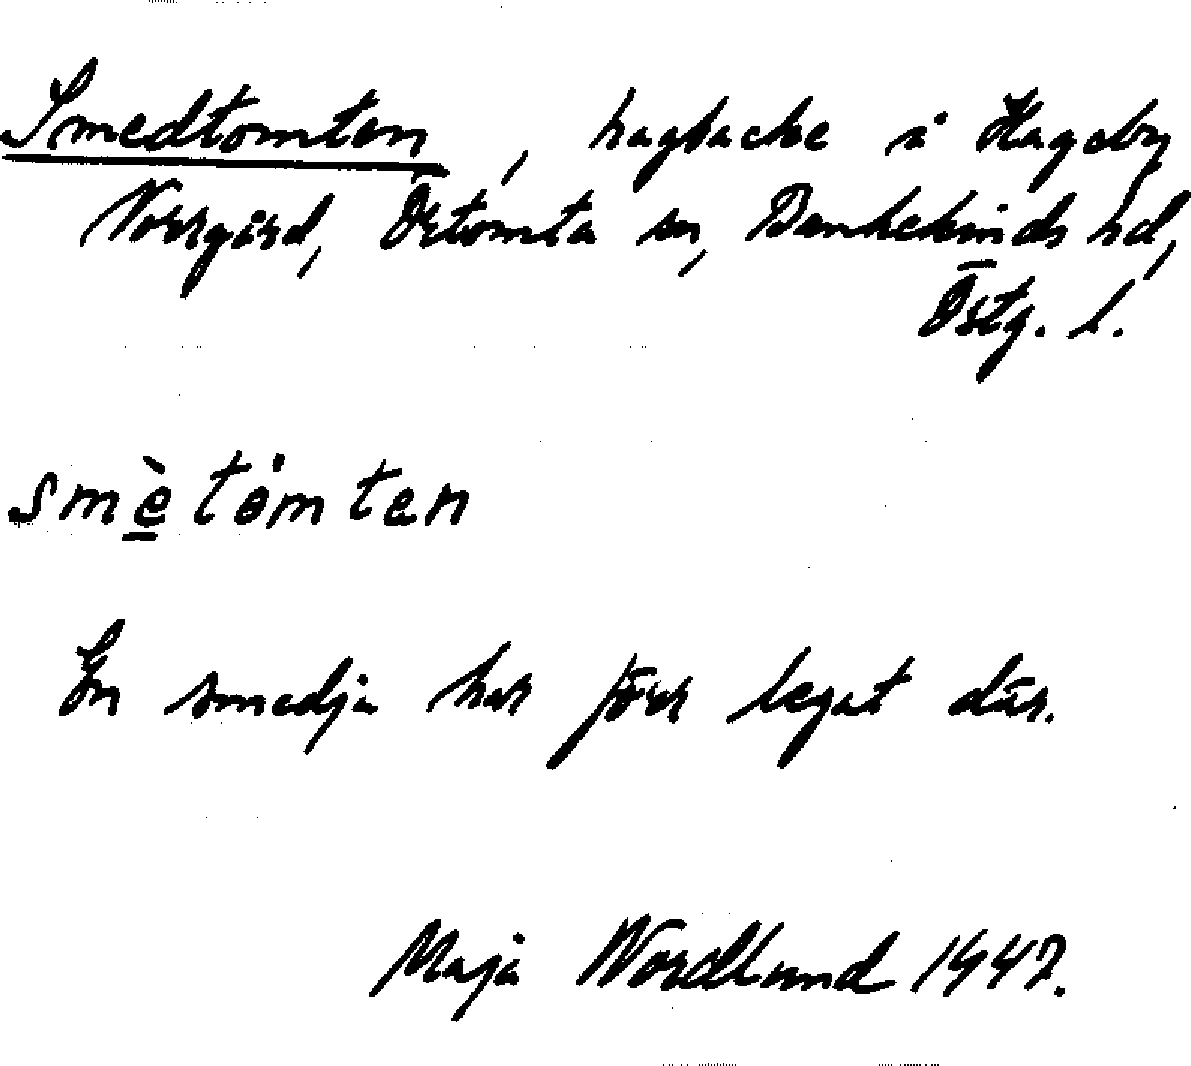 Smedtomten, hagbacke i Hageby
Norrgård, Örtomta sn, Bankekinds hd,
Östg. l.
smètomten
En smedja har förr legat där.
Maja Nordlund 1947.